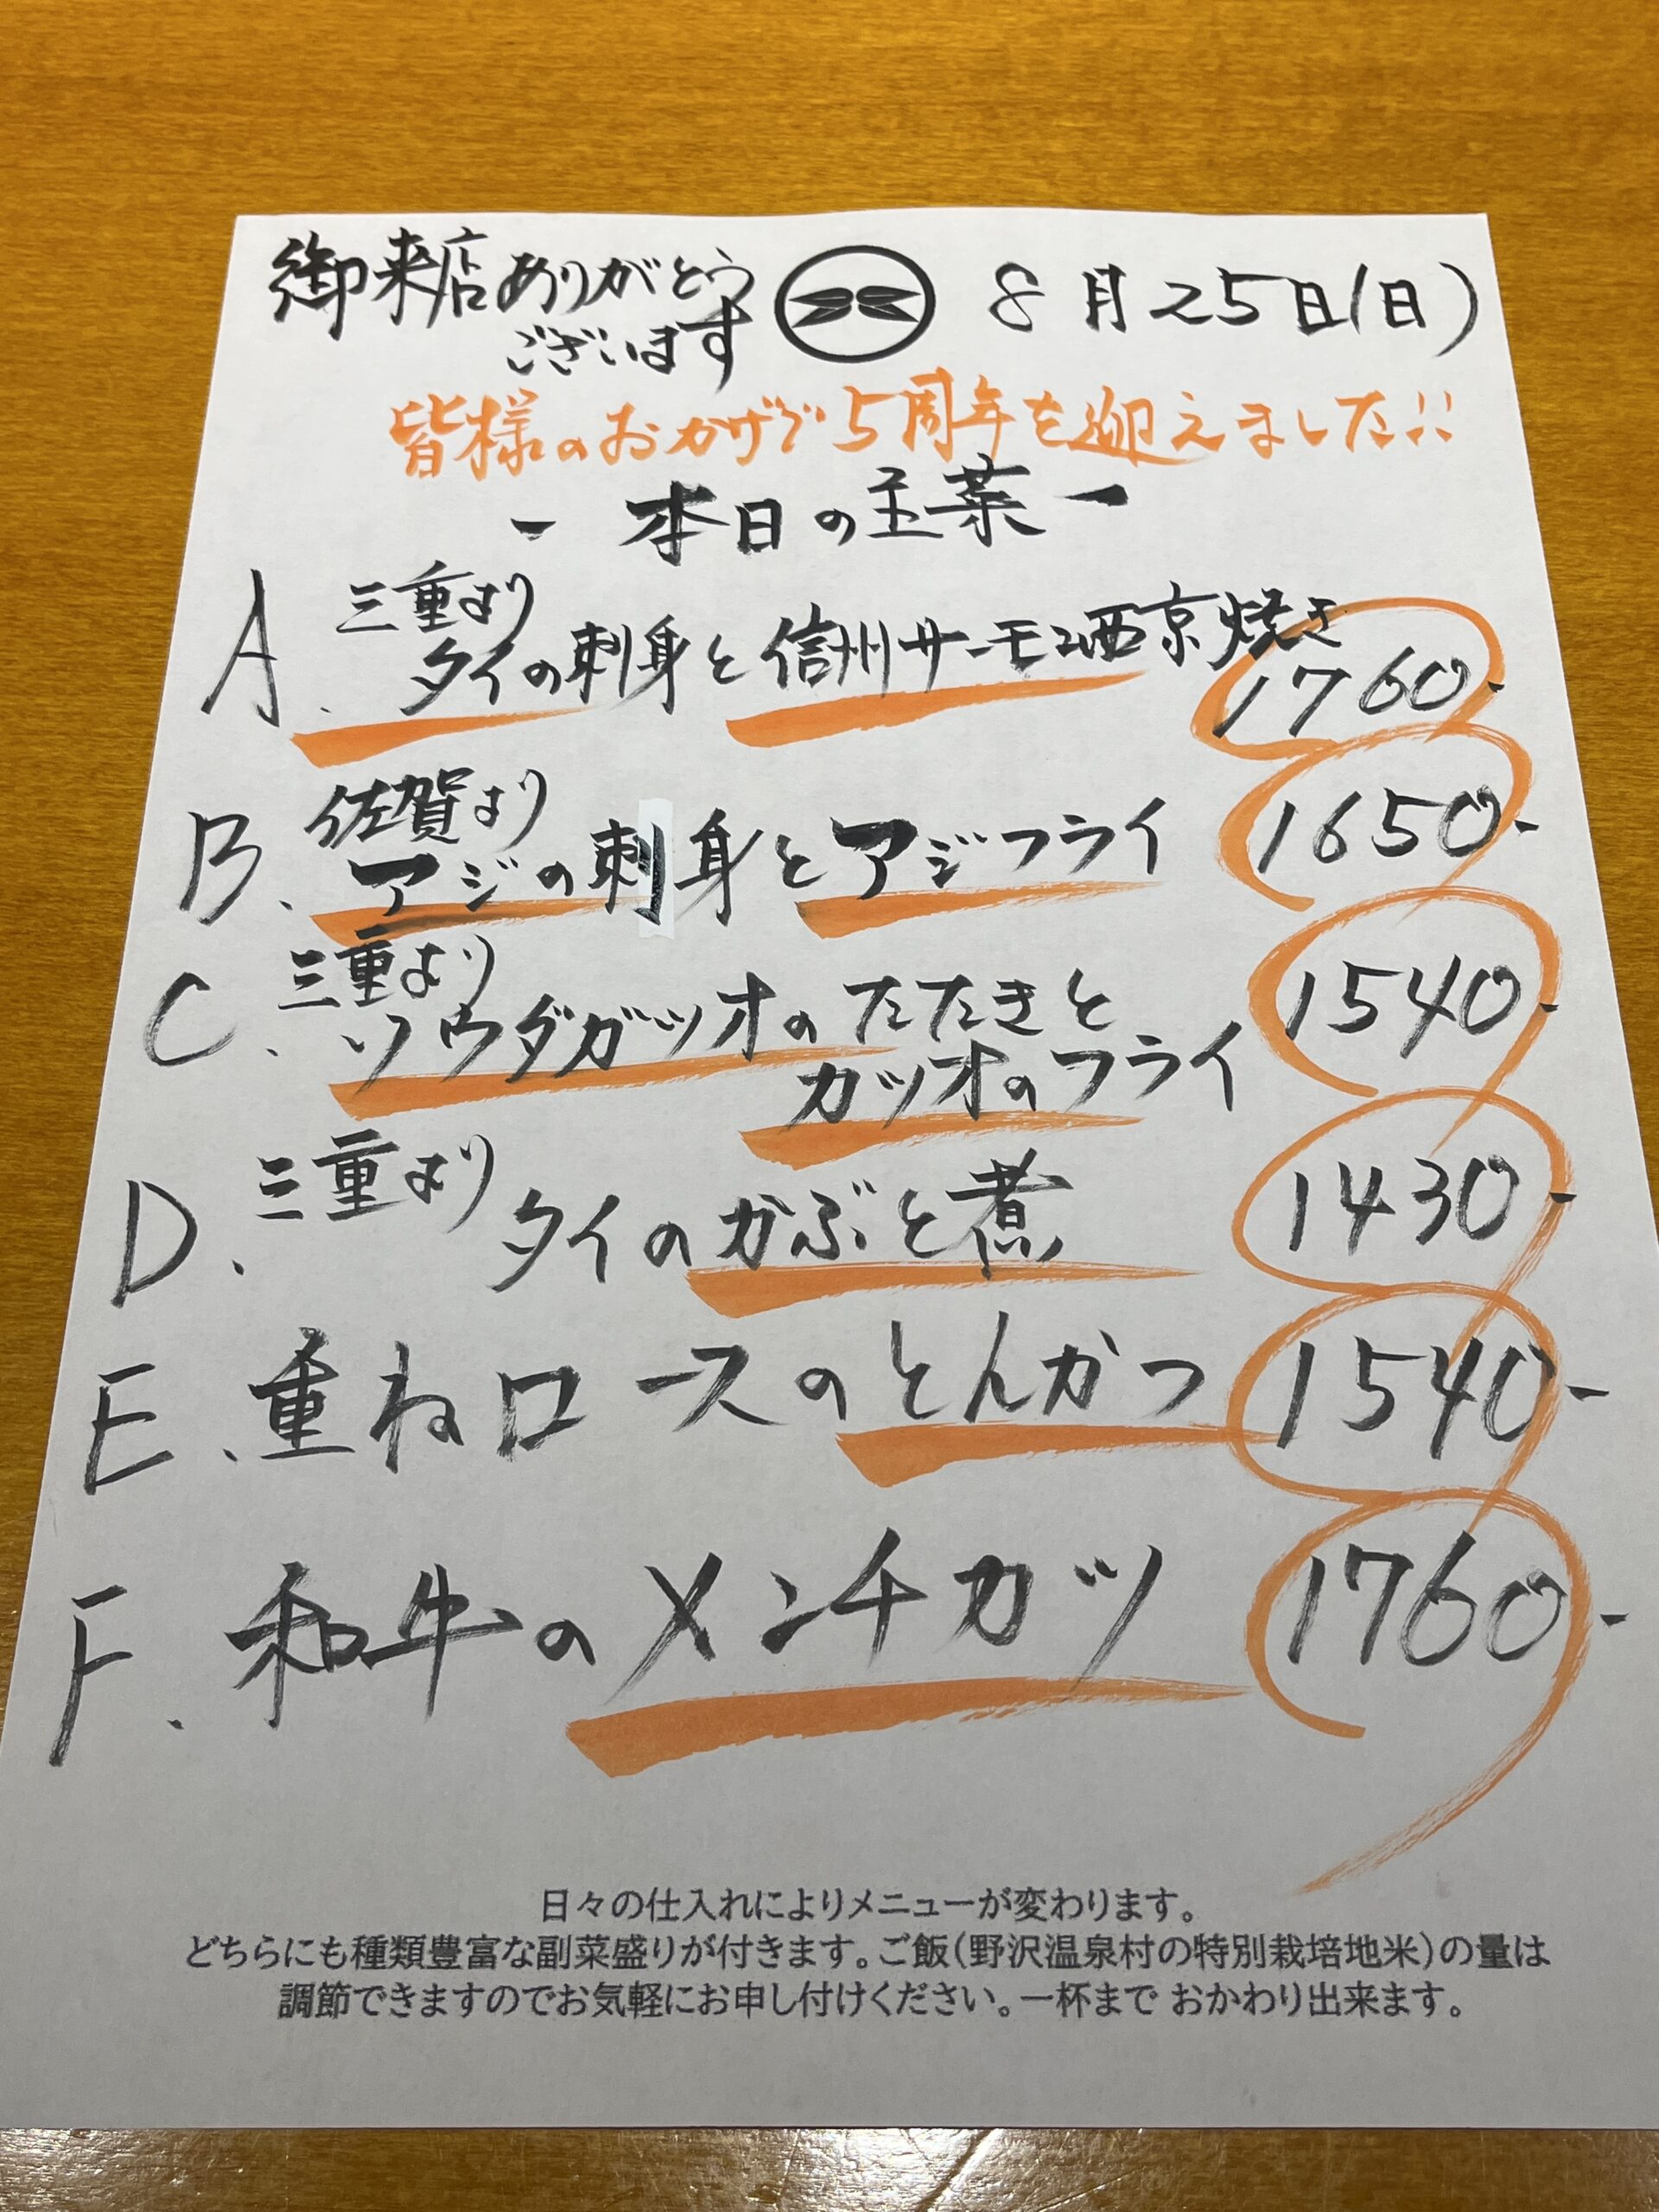 御来店ありがとう
ございます
8月25日(日)
皆様のおかげで5周年を迎えました!!
- 本日の主菜 -
A. 三重より
タイの刺身と信州サーモン西京焼き
1760-
B. 佐賀より
アジの刺身とアジフライ
1650-
C. 三重より
ソウダガツオのたたきと
カツオのフライ
1540-
D. 三重より タイのかぶと煮 1430-
E. 重ねロースのとんかつ 1540-
F. 和牛のメンチカツ 1760-
日々の仕入れによりメニューが変わります。
どちらにも種類豊富な副菜盛りが付きます。ご飯(野沢温泉村の特別栽培地米)の量は
調節できますのでお気軽にお申し付けください。一杯まで おかわり出来ます。